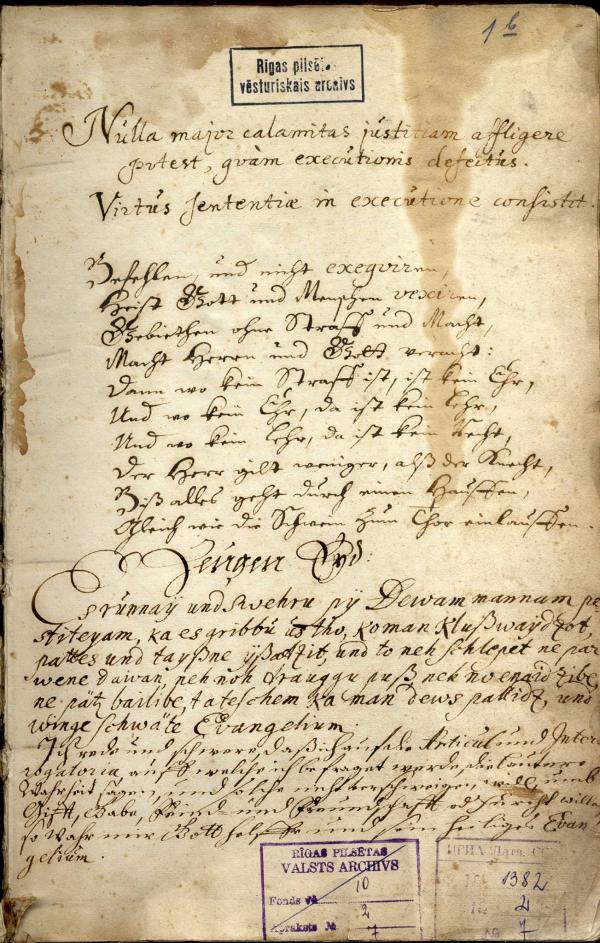 1 b
Rīgas pilsēt.
vēsturiskais archivs
Nulla major calamitas justitiam affligere
potest, qvàm executionis defectus.
Virtus sententiæ in executione consistit.
Befehlen, und nicht exeqviren,
Heist Gott und Menschen vexiren,
Gebiethen ohne Straff und Macht,
Macht Herren und Gott veracht:
Dann wo kein Straff ist, ist kein Ehr,
Und wo kein Ehr, da ist kein Lehr,
Und wo kein Lehr, da ist kein Recht,
Der Herr gilt weniger, alß der Knecht,
Biß alles geht durch einen Hauffen,
Gleich wie die Schwein zum Thor einlauffen.
Zeugen Eyd:
Es runnaÿ und swehru pÿ Dewam mannam pe
stiteyam, ka es gribbu us tho, ko man Klußwaydzot,
pattes und tayßne yßatzit, und to neh schlepet ne par
wene dawan, neh noh drauggu puß neh no enaidzibe,
ne pätz bailibe, tateschem ka man dews pallidz, und
winge schwäte Evangelium.
Ich rede und schwere, daß ich auf alle Articul und Inter
rogatoria, auf welche ich befraget werde, die lautere
Wahrheit sagen, und solche nicht verschweigen will, umb
Gifft, Gabe, Feind- und Freundschafft od. furcht willen
so Wahr mir Gott helffe und sein heiliges Evan
gelium.
RĪGAS PILSĒTAS
VALSTS ARCHIVS
Fonds № 10
2
Apraksts № 7
1382
2
7